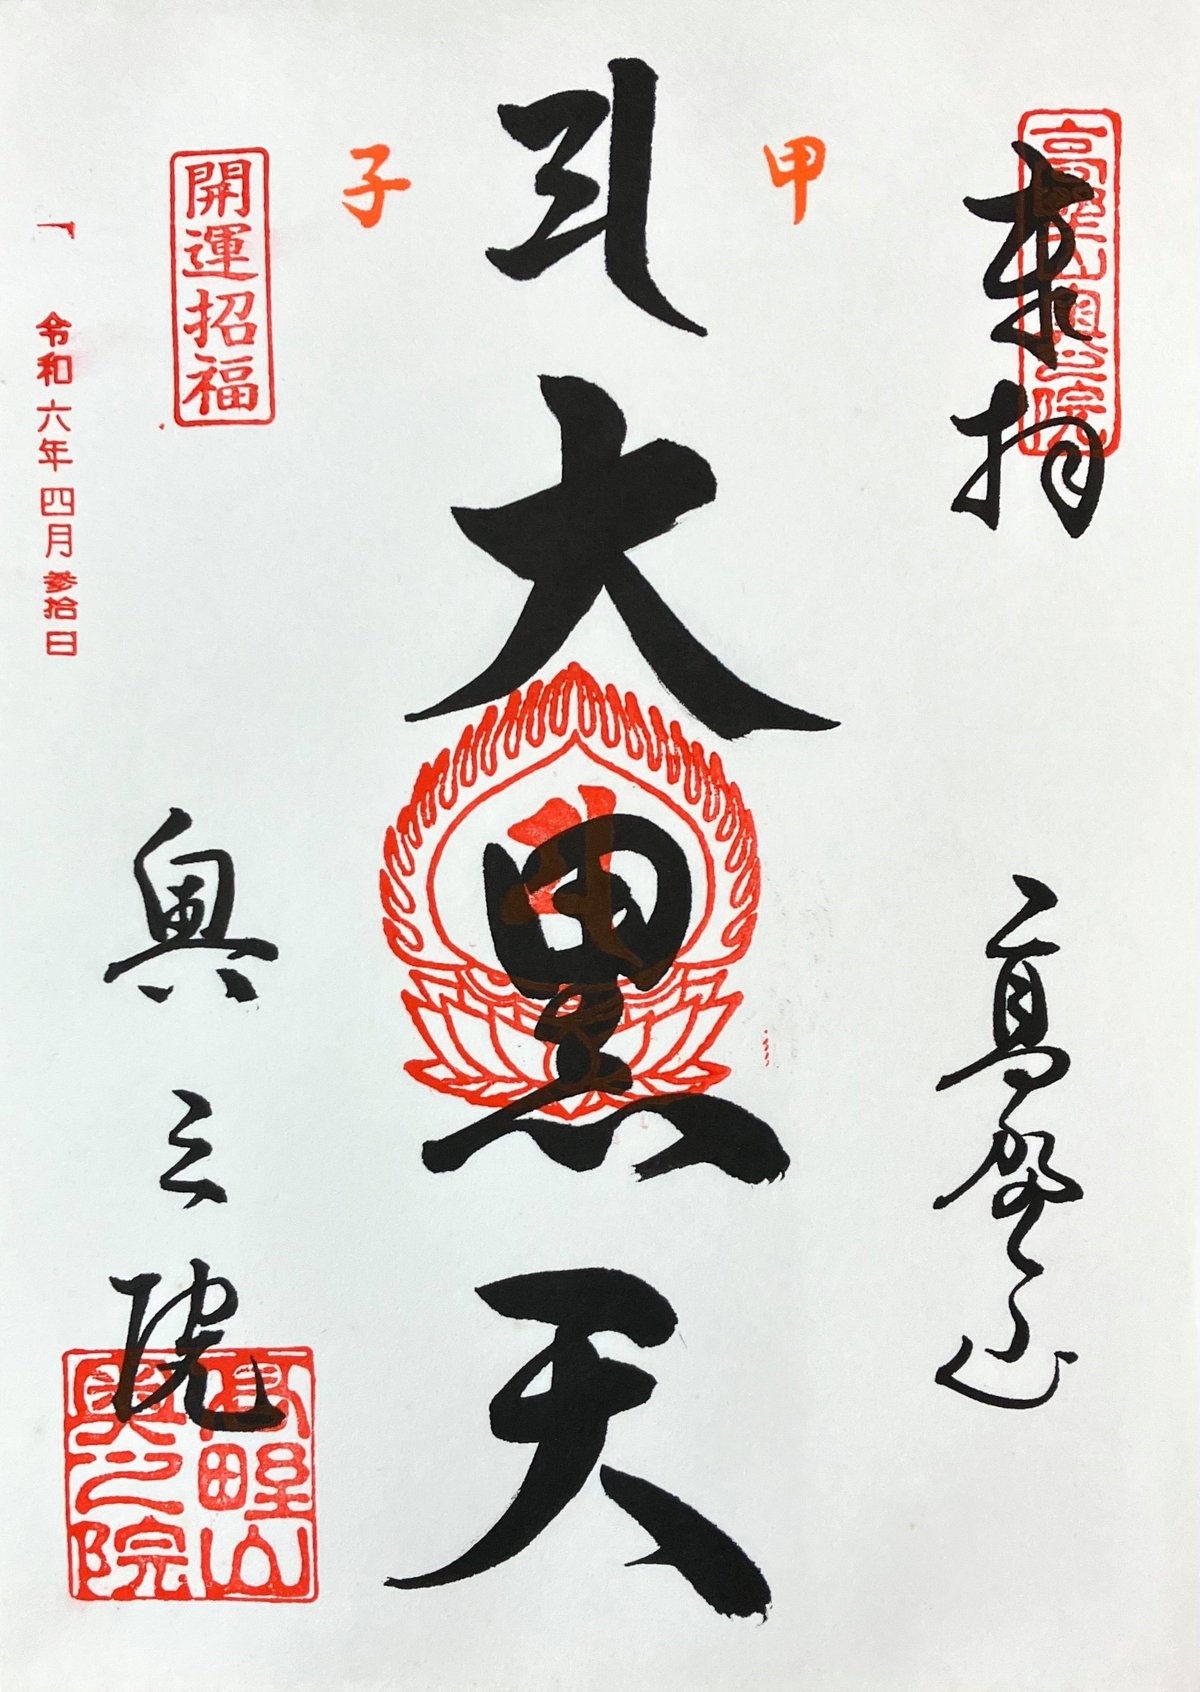 奉拝
高野山奥之院
高野山
甲
大黒天
子
開運招福
奥之院
高野山
奥之院
令和六年四月参拾日